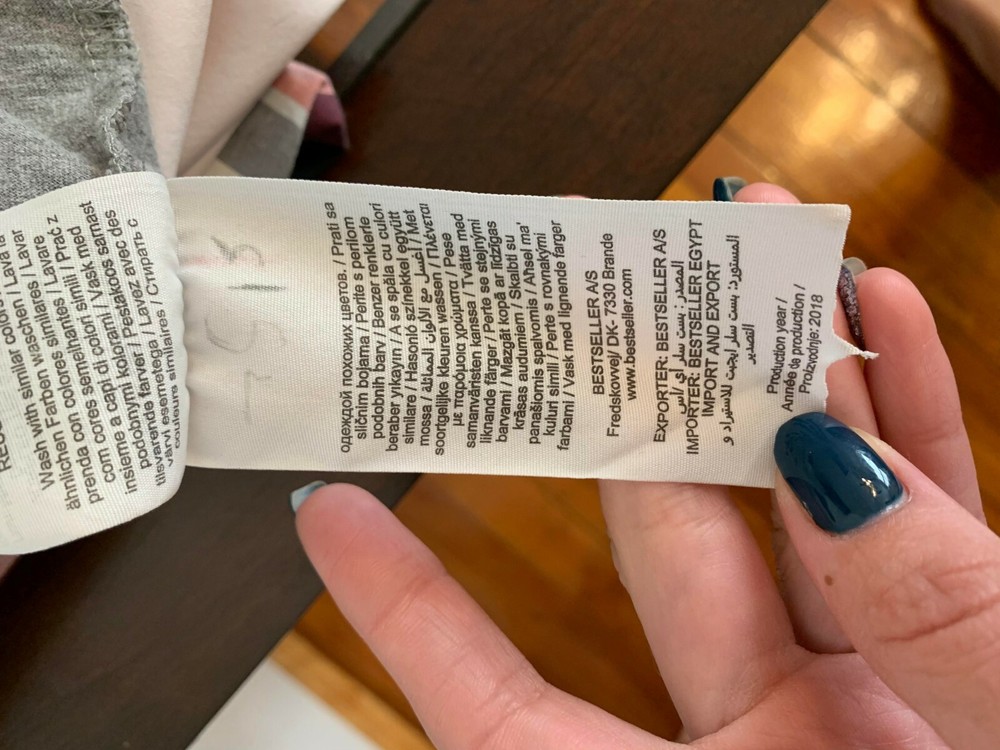 Wash with similar colours / Lava la
ähnlichen Farben waschen / Lavar
prenda con colores similares / Lavar
com cores semelhantes / Lavare
insieme a capi di colori simili / Prać z
podobnymi kolorami / Vask med
lignende farver / Pestävä
värvi esemetega / Lavez avec des
couleurs similaires / Стирать с
одеждой похожих цветов. / Prati sa
sličnim bojama / Perite s perilom
podobnih barv / Benzer renklerle
beraber yıkayın / A se spăla cu culori
similare / Hasonló színekkel együtt
mossa / اغسل مع الألوان المماثلة / Met
soortgelijke kleuren wassen / Πλένεται
με παρόμοια χρώματα / Pese
samanväristen kanssa / Tvätta med
liknande färger / Perte se stejnými
barvami / Mazgāt kopā ar līdzīgas
krāsas audumiem / Skalbti su
panašiomis spalvomis / Ahsel ma'
kuluri simili / Perte s rovnakými
farbami / Vask med lignende farger
BESTSELLER A/S
Fredskovvej/ DK- 7330 Brande
www.bestseller.com
EXPORTER: BESTSELLER A/S
المصدر: بست سلر اي /اس
IMPORTER: BESTSELLER EGYPT
IMPORT AND EXPORT
المستورد: بست سلر ايجيبت للاستيراد و
التصدير
Production year /
Année de production /
Proizvodnje: 2018